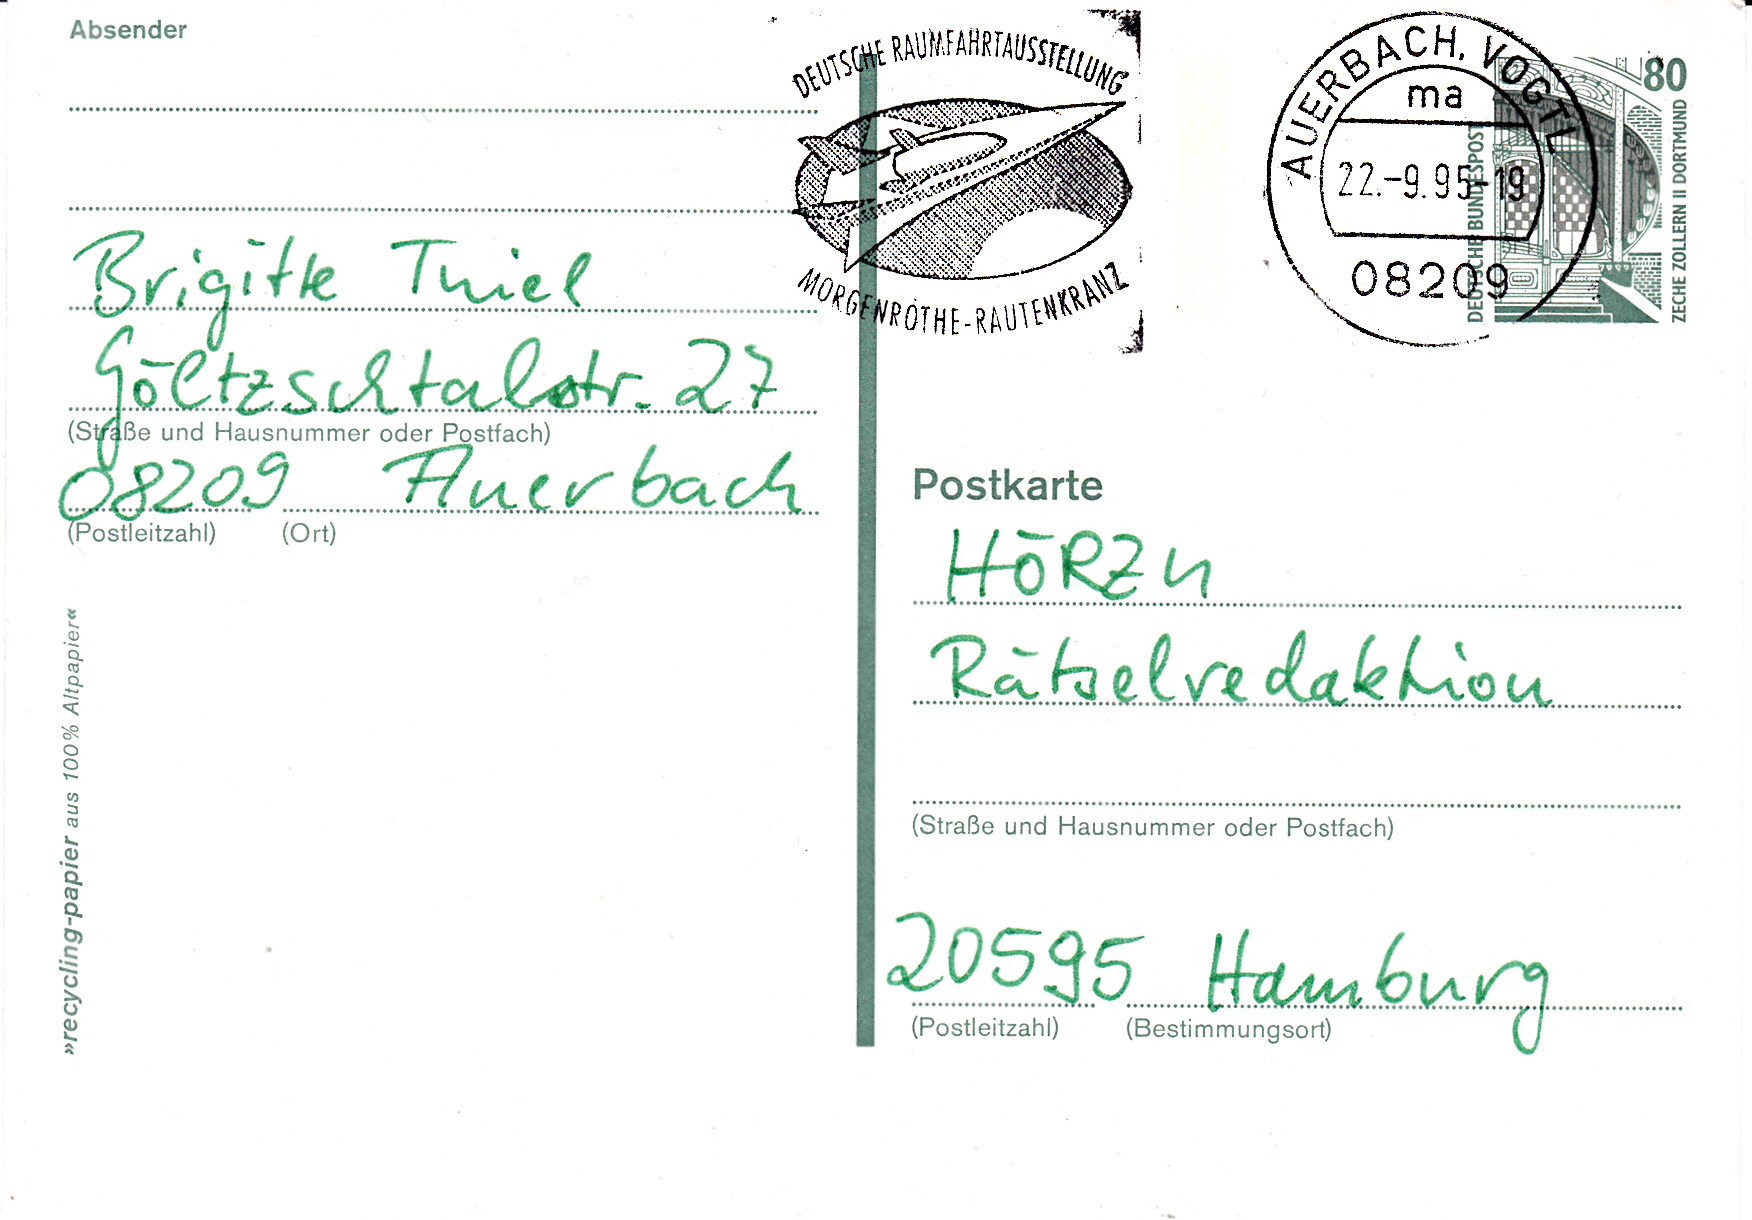 Absender
Brigitte Thiel
Göltzschtalstr. 27
(Straße und Hausnummer oder Postfach)
08209 Auerbach
(Postleitzahl) (Ort)
»recycling-papier aus 100% Altpapier«
DEUTSCHE RAUMFAHRTAUSSTELLUNG
MORGENRÖTHE-RAUTENKRANZ
AUERBACH, VOGTL
ma
22.-9.95-19
08209
80
DEUTSCHE BUNDESPOST
ZECHE ZOLLERN II DORTMUND
Postkarte
HÖRZU
Rätselredaktion
(Straße und Hausnummer oder Postfach)
20595 Hamburg
(Postleitzahl) (Bestimmungsort)